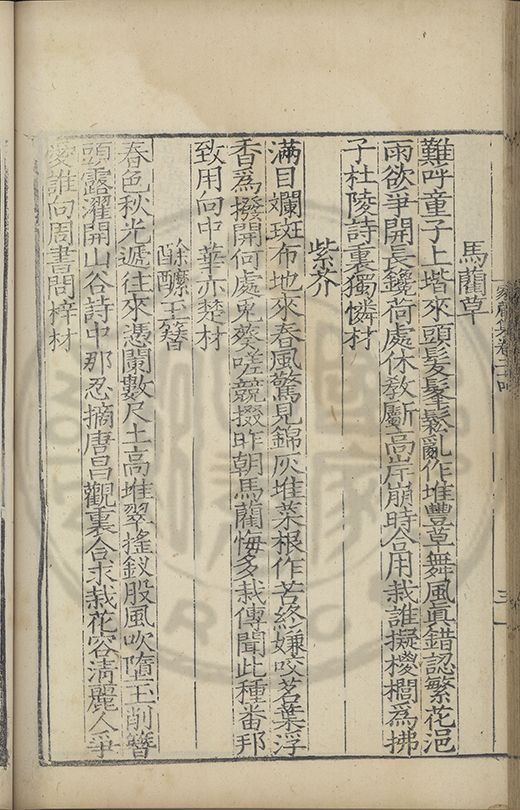 馬藺草
難呼童子上堦來頭髮鬅鬆亂作堆豐草舞風眞錯認繁花浥
雨欲爭開長鑱荷處休教斸高岸崩時合用栽誰擬椶櫚爲拂
子杜陵詩裏獨憐材
紫芥
滿目斕斑布地來春風驚見錦灰堆菜根作苦終嫌咬茗葉浮
香爲撥開何處兎葵嗟競掇昨朝馬藺悔多栽傳聞此種番邦
致用向中華亦楚材
玉簪
春色秋光遞往來憑闌數尺土高堆翠搖釵股風吹墮玉削簪
頭露濯開山谷詩中那忍摘唐昌觀裏合求栽花容清麗人爭
愛誰向周書問梓材